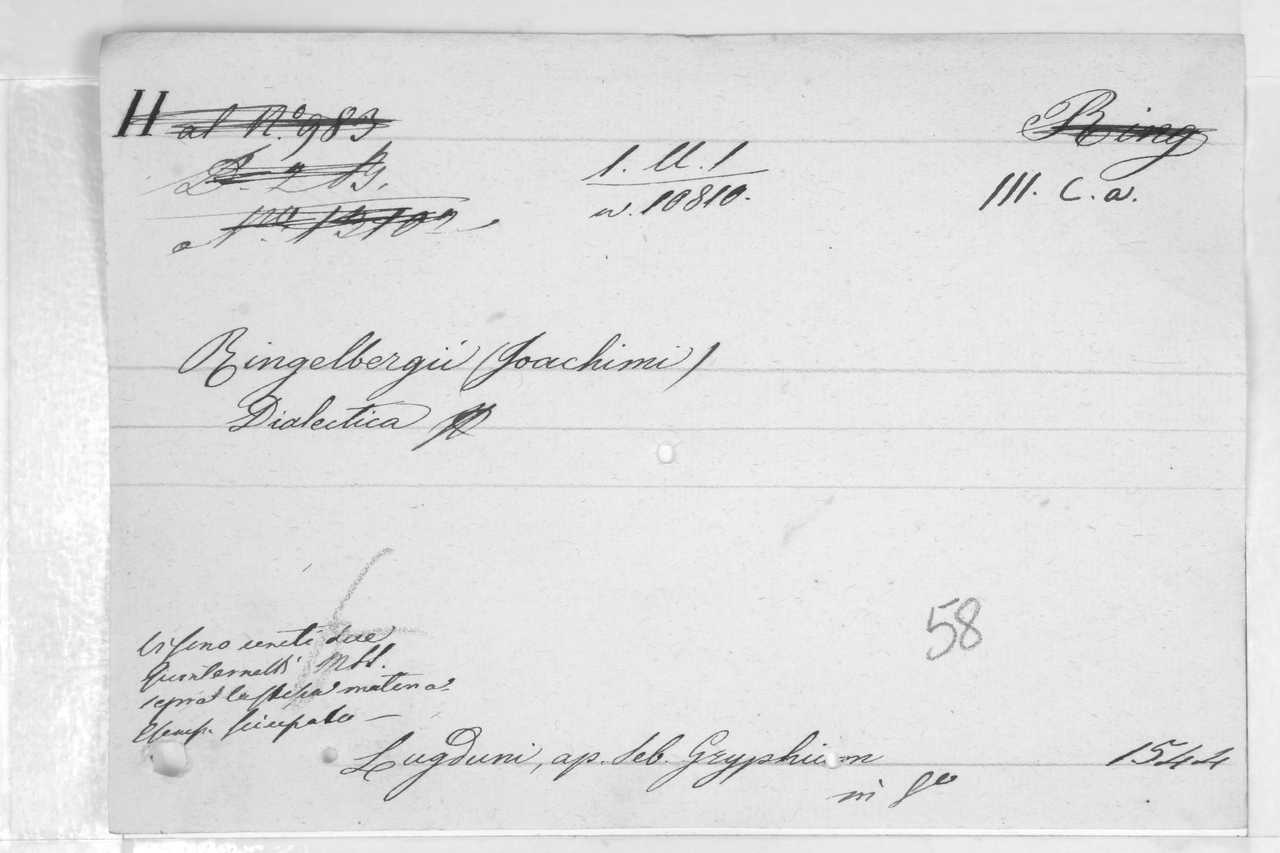 H al N.º 983
Ring
D. 2 B.
1. U. 1
III. C. a.
n. 10810.
Ringelbergii (Joachimi)
Dialectica
58
Vi sono uniti due
quinternetti MSS.
sopra la stessa materia
Esemp. sciupato —
Lugduni, ap. Seb. Gryphium 1544
in 8º